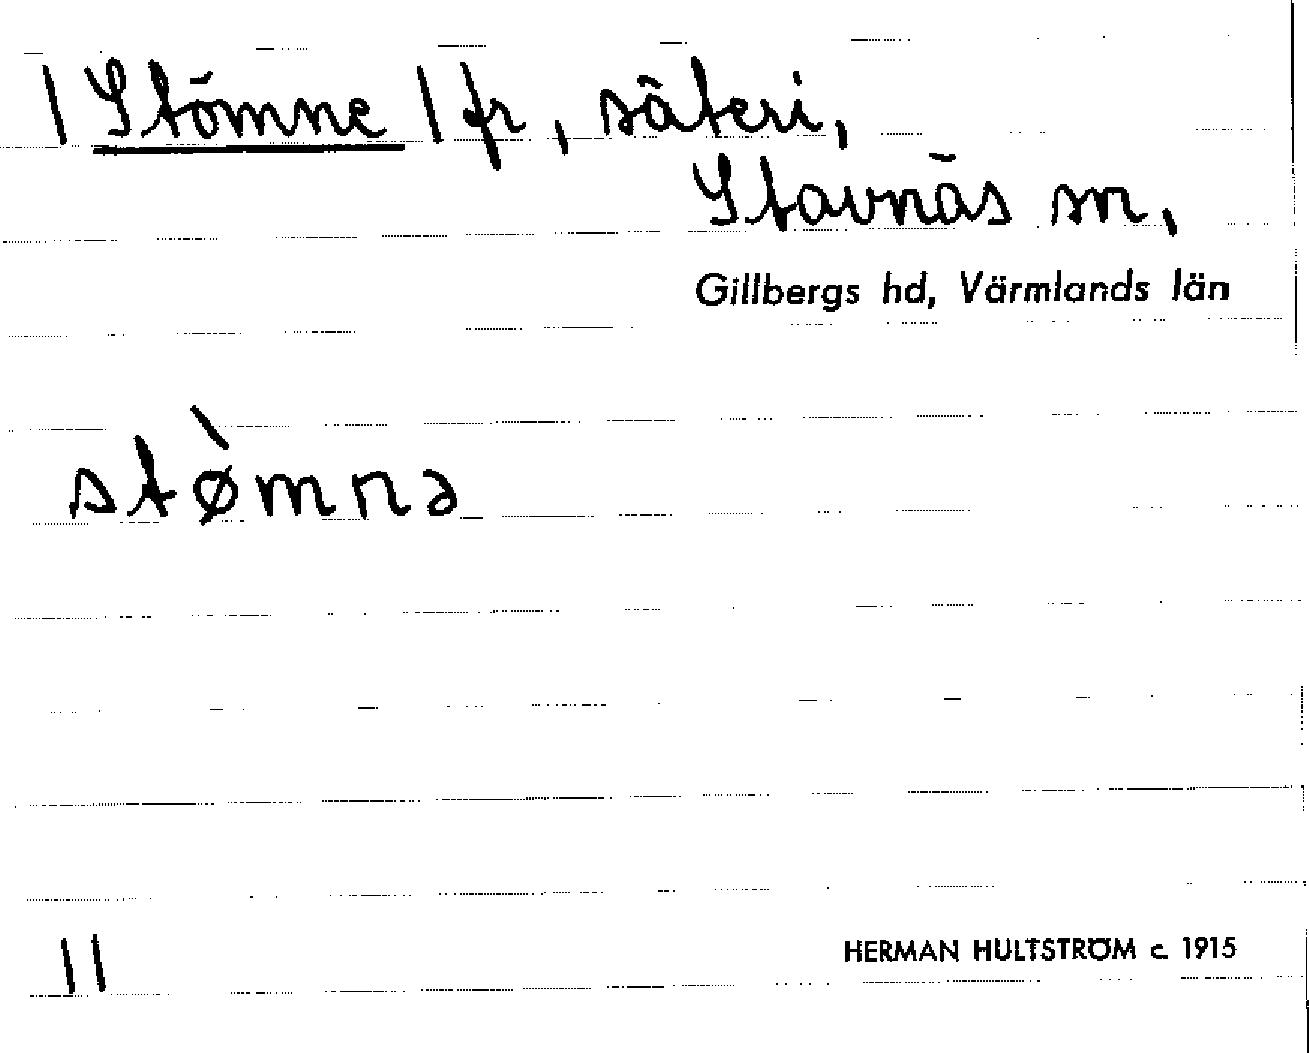 | Stömne | fr, säteri,
Stavnäs sn,
Gillbergs hd, Värmlands län
stø̀mnə
||
HERMAN HULTSTRÖM c. 1915